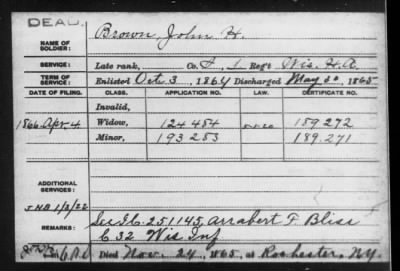 DEAD.
NAME OF SOLDIER: Brown, John H.
SERVICE: Late rank, Co. I, 1 Reg't Wis. H.A.
TERM OF SERVICE: Enlisted Oct. 3, 1864 Discharged May 30, 1865
DATE OF FILING. CLASS. APPLICATION NO. LAW. CERTIFICATE NO.
Invalid,
1866 Apr. 4 Widow, 124484 189272
Minor, 193253 189.271
ADDITIONAL SERVICES:
JHB 1/3/22
REMARKS: See I.C. 251145, Arrabert F. Bliss
C 32 Wis Inf
Died Nov. 24, 1865, at Rochester, N.Y.